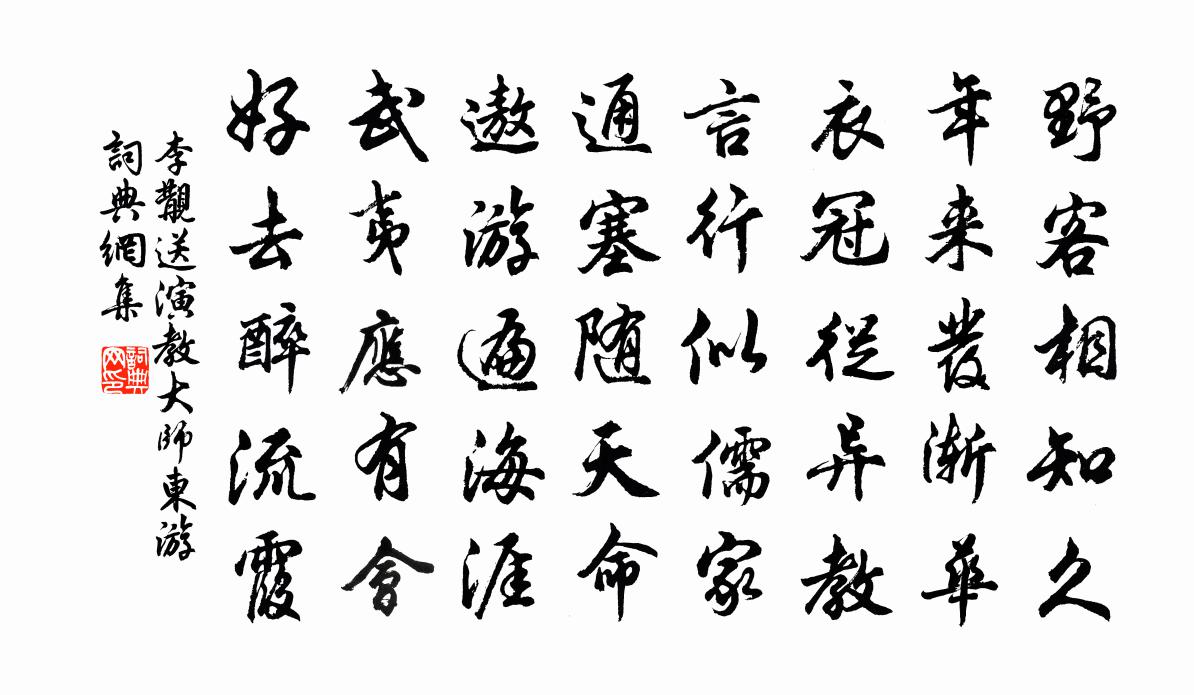 野客相知久
年来發渐華
衣冠從异教
言行似儒家
通塞随天命
遨游遍海涯
武夷應有會
好去醉流霞
李覯送演教大師東游
詞典網集
詞典网印